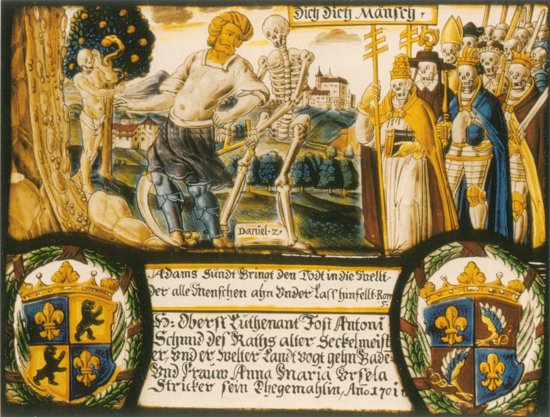 Dich Dich Mänsch.
Daniel·2·
Adams Sündt Bringt den Todt in die Wellt
Der alle Menschen ahn Under Lass hinfellt Rom
5.
Hr. Oberst Lüthenant Jost Antoni
Schmid des Raths alter Seckelmeist
er Und er Welter Landt Vogt gehn Bade
Und Frauw Anna Maria Ursela
Stricker sein Ehegemahlin, Año 1701